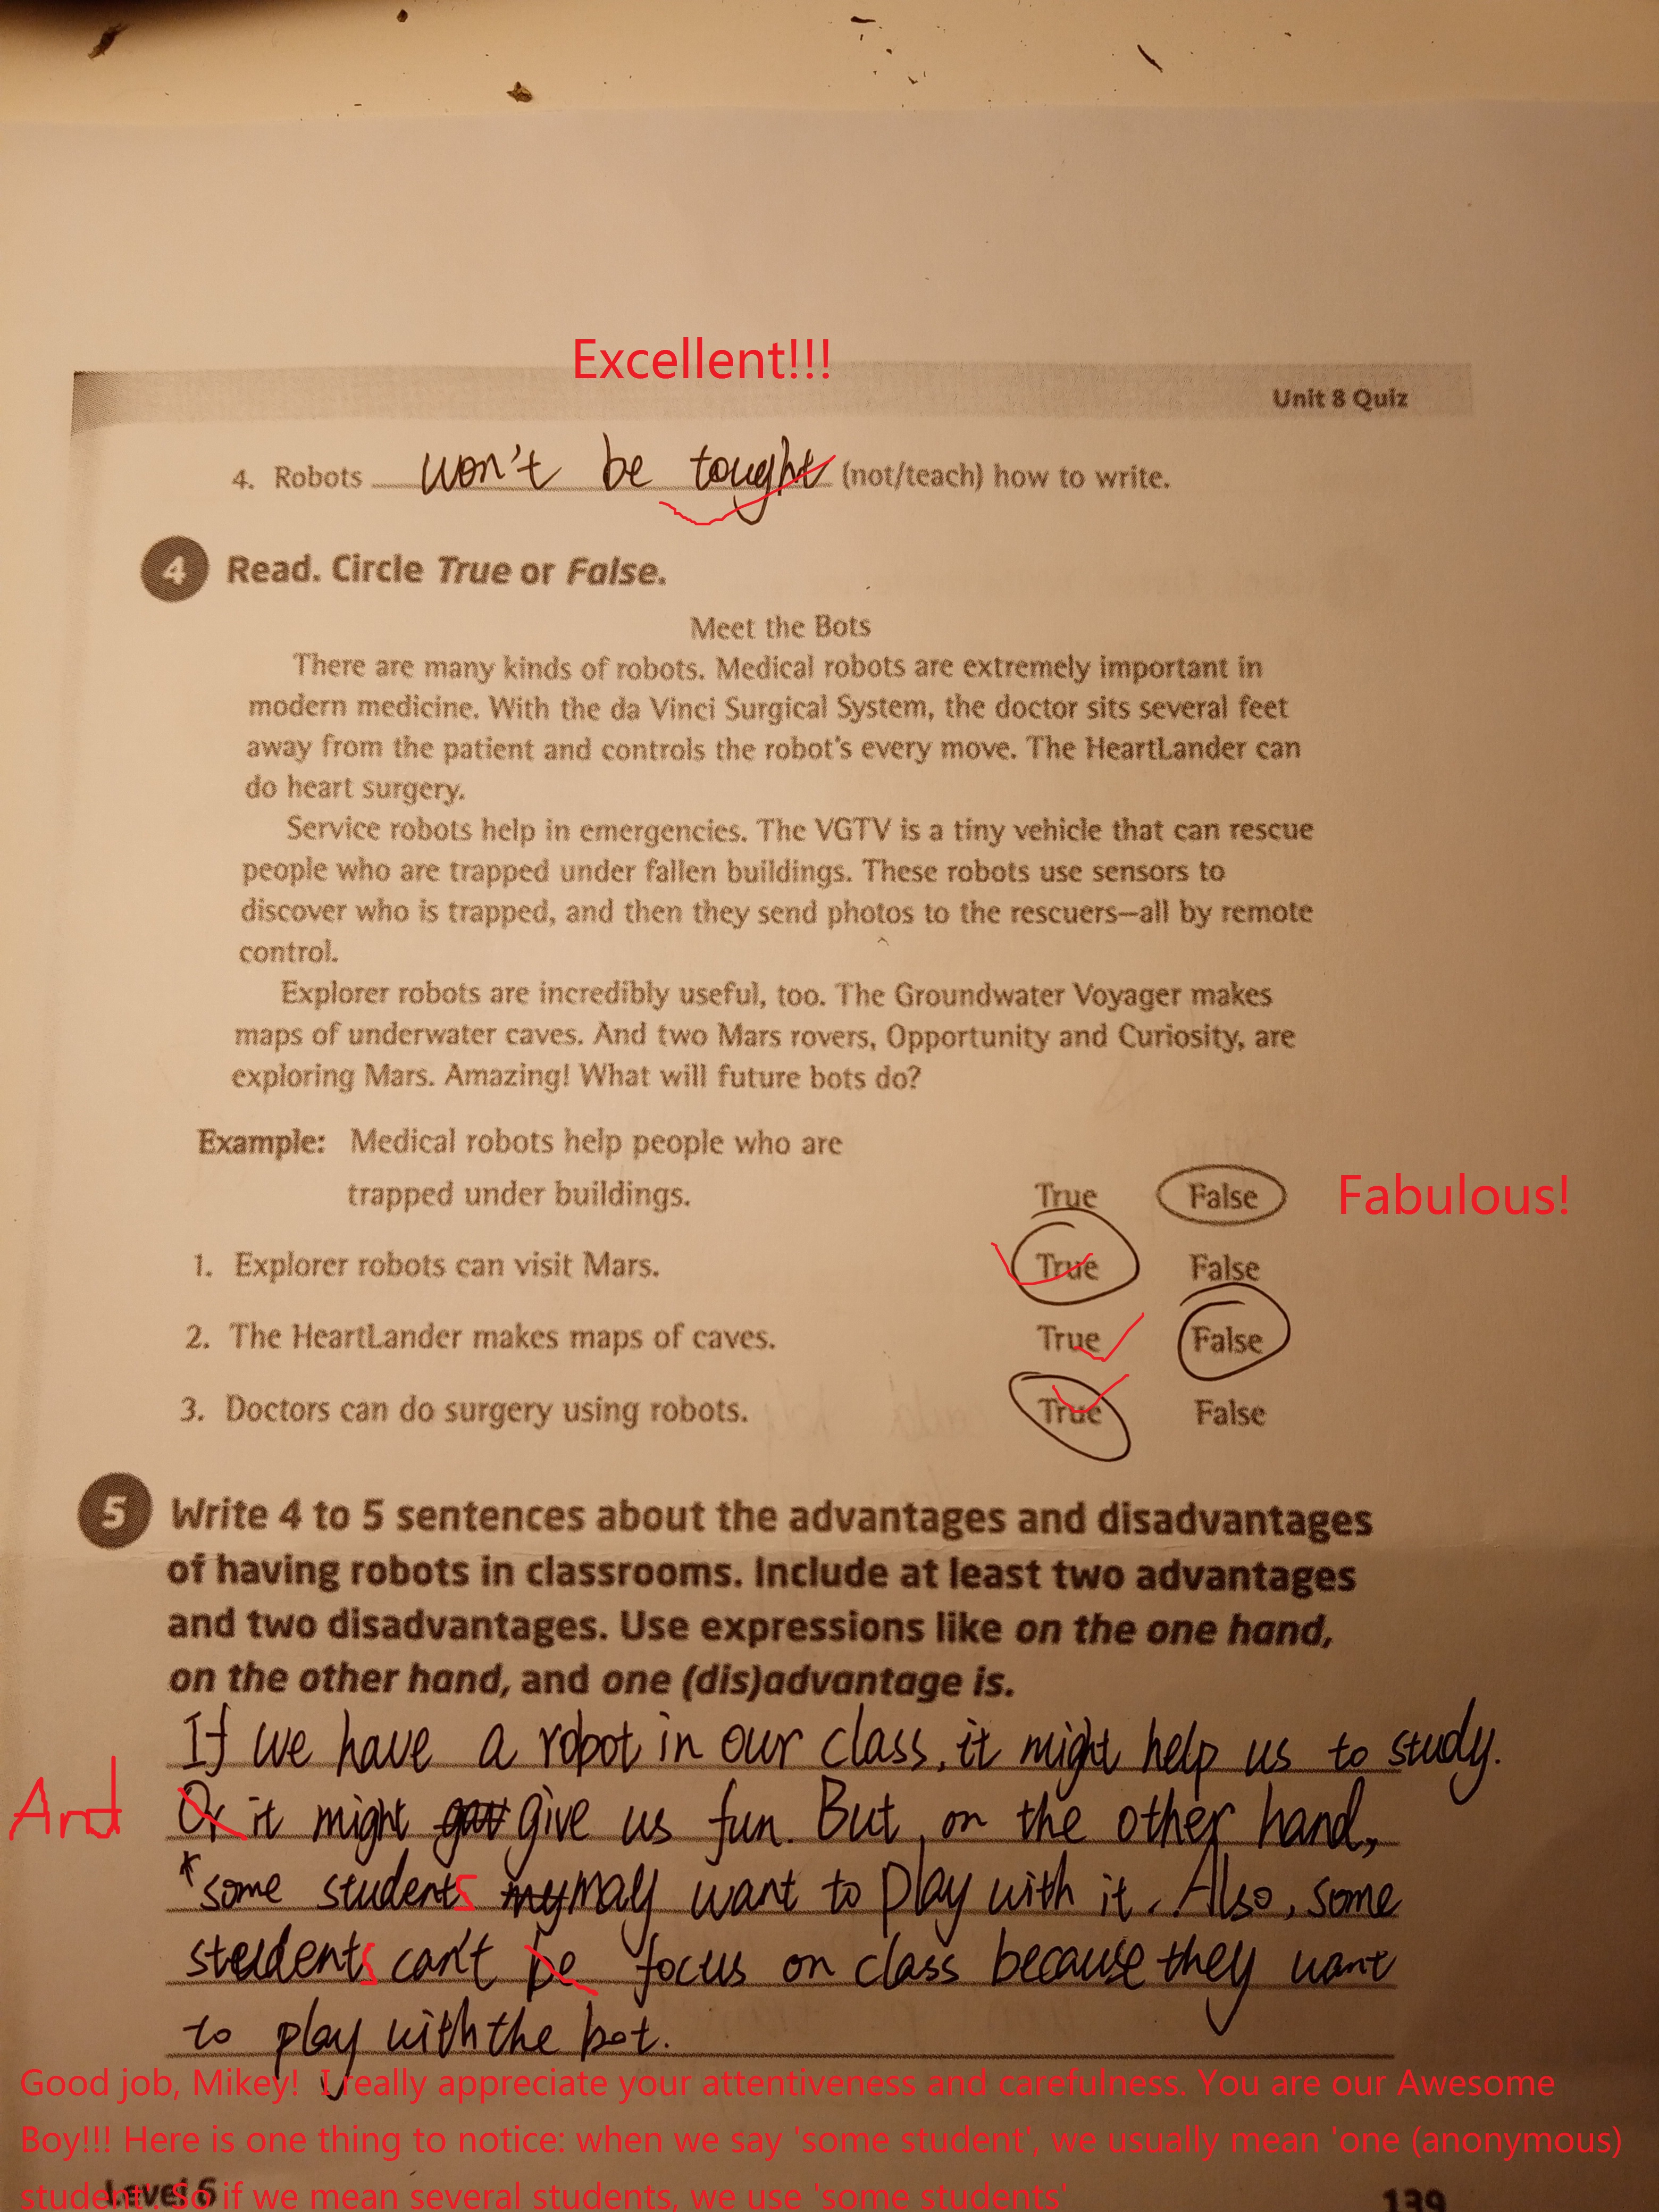 Excellent!!!
Unit 8 Quiz
4. Robots won't be tought (not/teach) how to write.
4 Read. Circle True or False.
Meet the Bots
There are many kinds of robots. Medical robots are extremely important in
modern medicine. With the da Vinci Surgical System, the doctor sits several feet
away from the patient and controls the robot's every move. The HeartLander can
do heart surgery.
Service robots help in emergencies. The VGTV is a tiny vehicle that can rescue
people who are trapped under fallen buildings. These robots use sensors to
discover who is trapped, and then they send photos to the rescuers—all by remote
control.
Explorer robots are incredibly useful, too. The Groundwater Voyager makes
maps of underwater caves. And two Mars rovers, Opportunity and Curiosity, are
exploring Mars. Amazing! What will future bots do?
Example: Medical robots help people who are
trapped under buildings. True False Fabulous!
1. Explorer robots can visit Mars. True False
2. The HeartLander makes maps of caves. True False
3. Doctors can do surgery using robots. True False
5 Write 4 to 5 sentences about the advantages and disadvantages
of having robots in classrooms. Include at least two advantages
and two disadvantages. Use expressions like on the one hand,
on the other hand, and one (dis)advantage is.
If we have a robot in our class, it might help us to study.
And Or it might give us fun. But, on the other hand,
*some students may want to play with it. Also, some
students can't be focus on class because they want
to play with the bot.
Good job, Mikey! I really appreciate your attentiveness and carefulness. You are our Awesome
Boy!!! Here is one thing to notice: when we say 'some student', we usually mean 'one (anonymous)
student'. So if we mean several students, we use 'some students'
Level 6
139